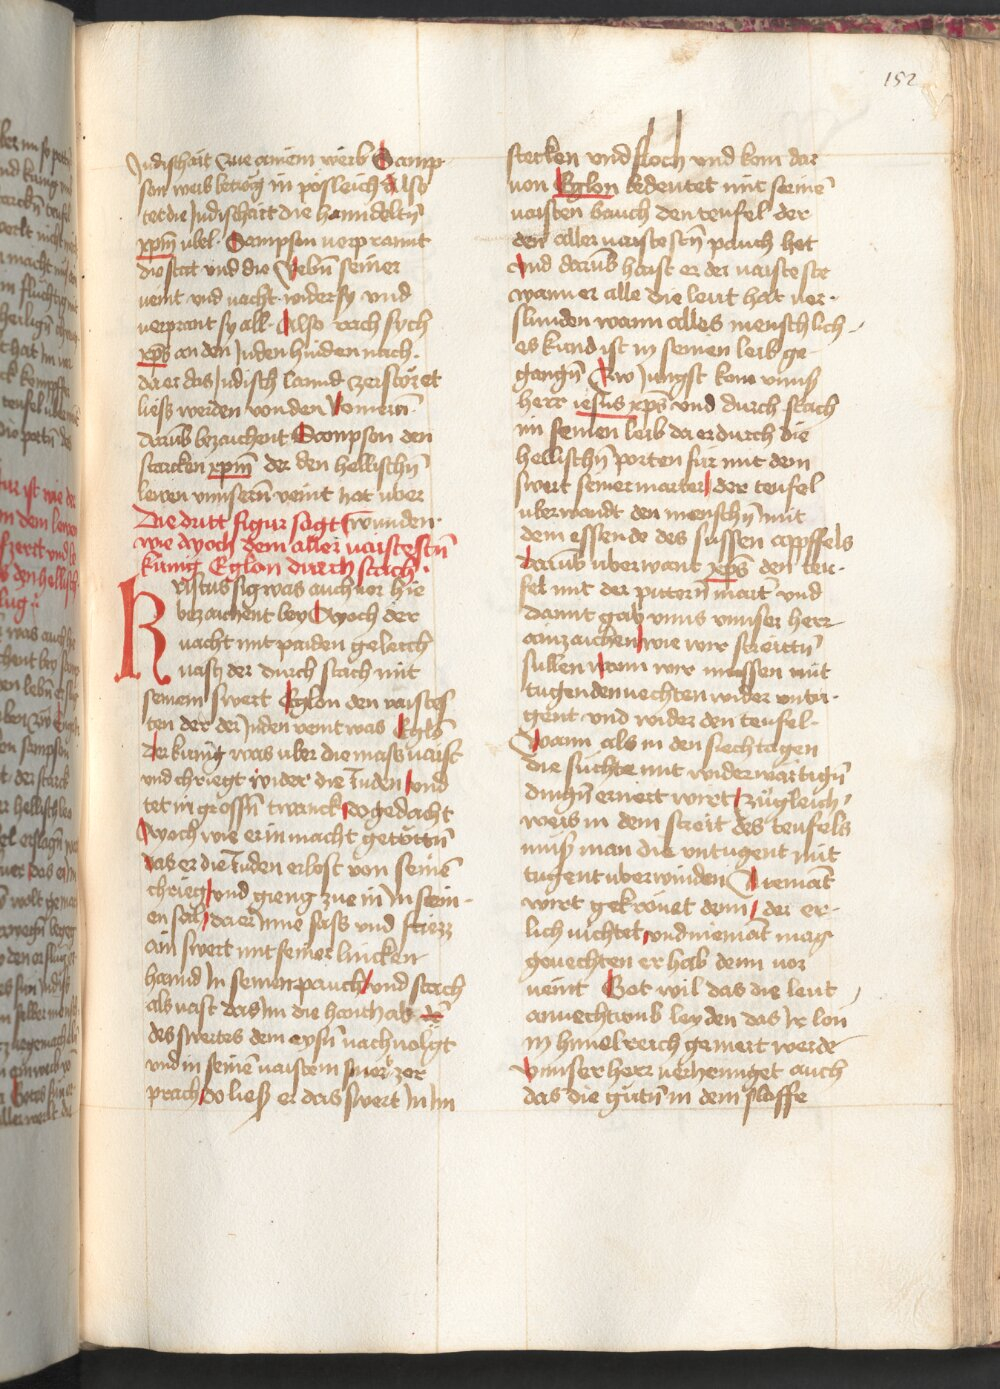 152
Judischait zue ainem weib Samp
son weib betrog in posleich Also
tet die Judischait die hanndeltn̄
xp̄m ubel · Sampson verprannt
die stat und die Rebnn̄ seiner
veint und racht wider sy und
verprant sy all · Also rach sych
xp̄s an den Juden hinden nach ·
da er das Judisch lannd zerstöret
liess werden von den Romern̄ ·
darūb bezaichent Sampson den
starcken xp̄m der den hellischn̄
lewen vnnsern̄ veint hat uber
Die dritt figur sagt wunden ·
wie Ayoch dem aller vaistestn̄
kunig Eglon durch stach ·
Kristus sig was auch vor hie
bezaichent bey Ayoch der
nacht mit paiden geleich
vash der durch stach mit
seinem swert Eglon den vaistes
ten der der Juden veint was Eglō
der kunig was uber die mass vaist
und chriegt wider die Juden und
tet in grossn̄ twanck do gedacht
Ayoch wie er in macht getöttn̄
das er die Juden erlost von seinē
chrieg und gieng zue in̄ in sein ·
en sal da er Inne sass und stiezz
ain swert mit seiner lincken
hannd In seinen pauch und stach
als vast das Im die hanthab
des swertes dem eysn̄ nachvolgt
und in seinē vaistem smer zer
prach do liess er das swert In Im
stecken und floch und kom dar
von Eglon bedeutet mit seinē
vaisten bauch den teufel der
den aller vaistestn̄ pauch het
Und darūb haist er der vaisteste
wann er alle die leut hat ver ·
slunden wann alles menschlich
es kund ist in seinen leib ge
gangn̄ Zw Jungst kom vnnsß
herr iesus xp̄s und durch stach
im seinen leib da er durch die
hellischn̄ porten für mit dem
swert seiner marter der teufel
uberwandt den menschn̄ mit
dem essende des sussen appffels
darūb uberwant xp̄s den teu ·
fel mit der pittern̄ mart und
damit gab vnns vnnser herr
ainzaichen wie wir streittn̄
sullen wann wir muessen mit
tugenden vechten wider untu ·
gent und wider den teufel ·
Wann als in den siechtagen
die suchte mit widerwärtign̄
dingn̄ ernert wirt zugleich
weis in dem streit des teufels
muß man die untugent mit
tugent uberwinden Niemāt
wirt gekrönet denn der er ·
lich vichtet und niemāt mag
gevechten er hab denn vor
veint Got wil das die leut
anvechtumb leyden das Ir lon
in himelreich gemert werde
vnnser herr verhennget auch
das die gutn̄ in dem slaffe